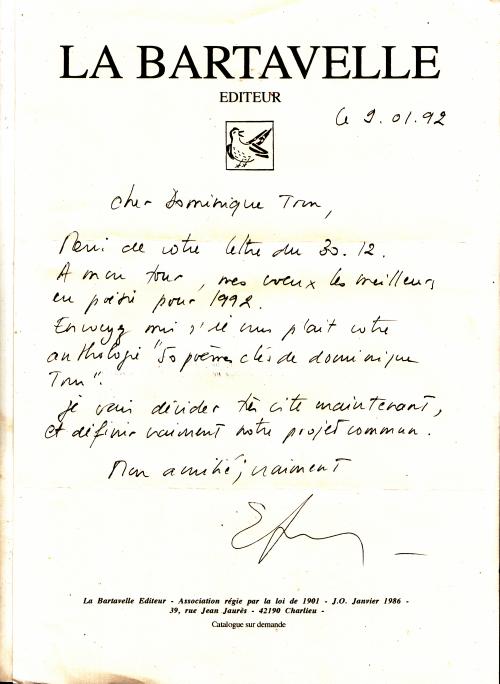 LA BARTAVELLE
EDITEUR
le 9.01.92
Cher Dominique Tron,
Merci de votre lettre du 30.12.
A mon tour, mes voeux les meilleurs
en poésie pour 1992.
Envoyez moi s'il vous plait votre
anthologie "50 poèmes clés de dominique
Tron".
Je vais décider très vite maintenant,
et définir vraiment notre projet commun.
Mon amitié, vraiment
La Bartavelle Editeur - Association régie par la loi de 1901 - J.O. Janvier 1986 -
39, rue Jean Jaurès - 42190 Charlieu -
Catalogue sur demande